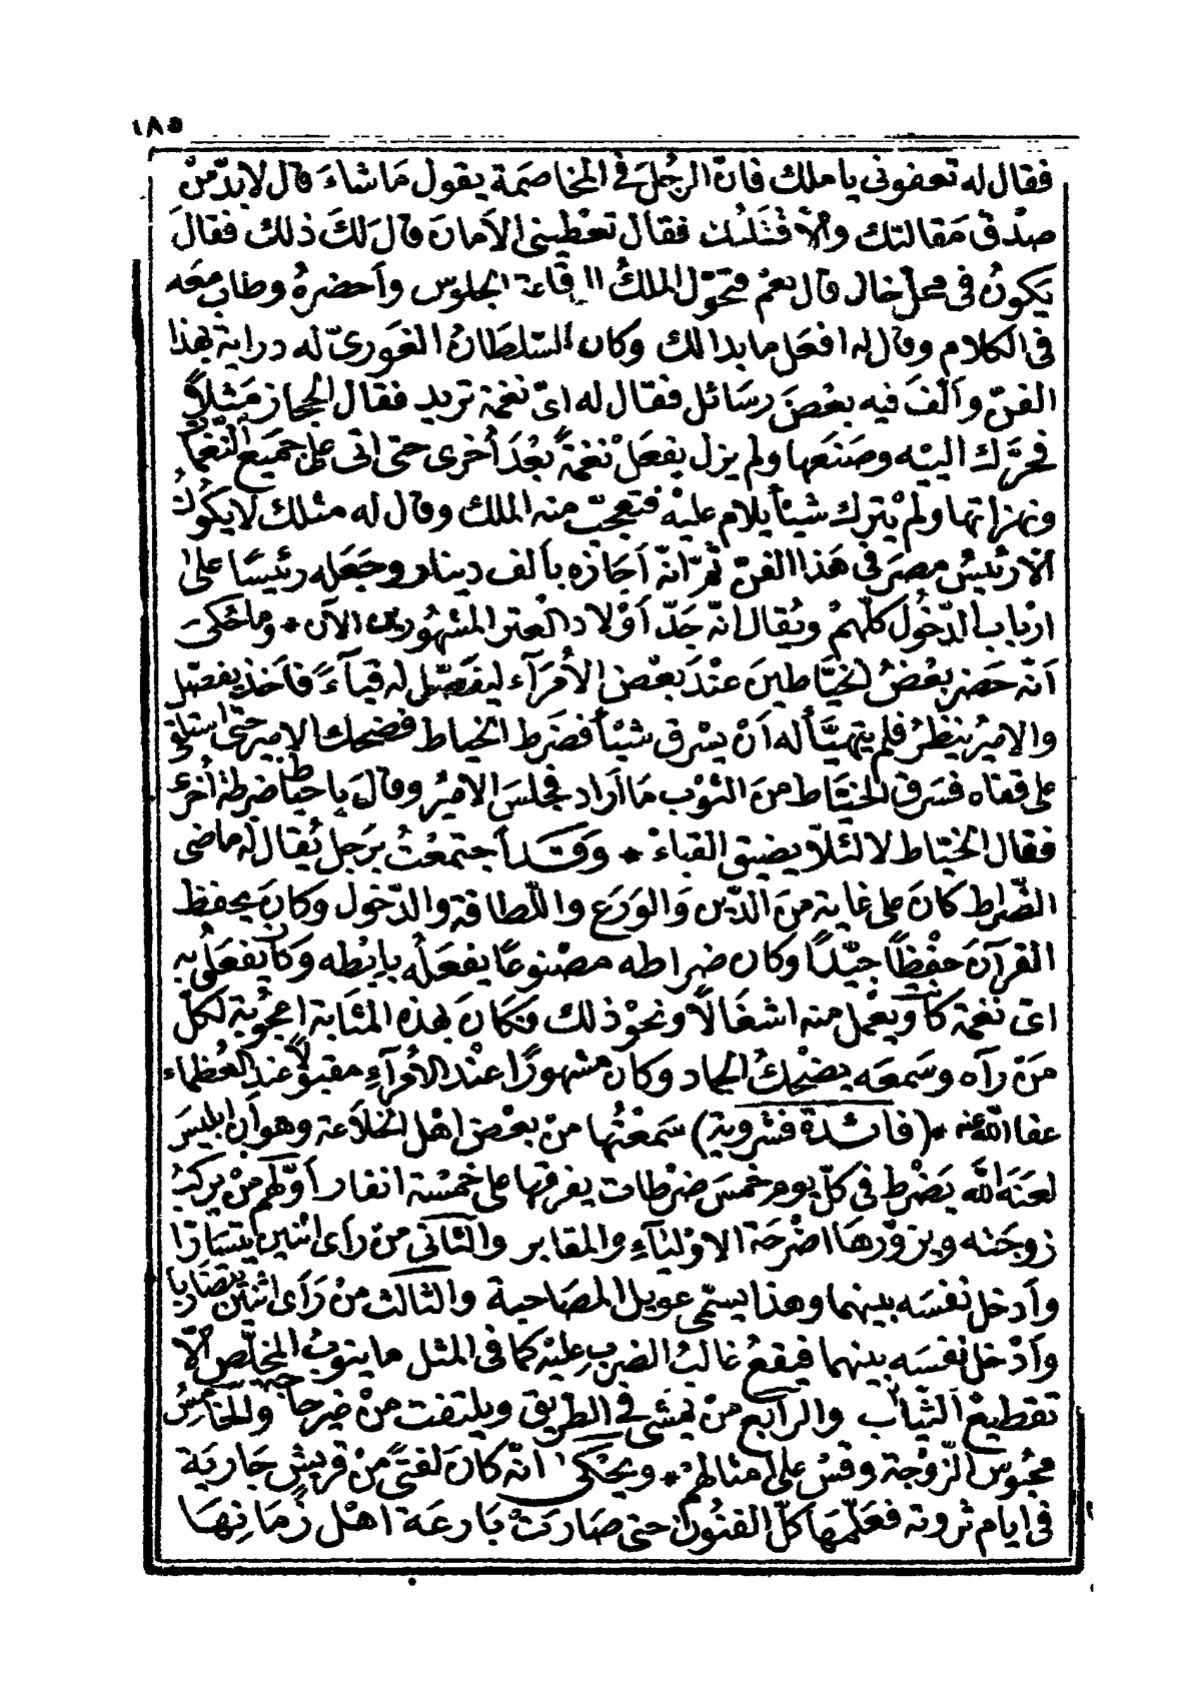 ١٨٥
فقال له تعفونى يا ملك فانّ الرجُلَ فى المخاصَمة يقول مَا شاءَ قال لابدّ منْ
صِدْق مَقالتك والّا قتلتك فقال تعْطينى الاَمانَ قال لَكَ ذلك فقالَ
يَكونُ فى محلّ خال قال نعم فتحوّل الملكُ الى قاعة الجلوس وأحضرهُ وطاب معَه
فى الكلام وقال له افعَل ما بدا لك وكان السّلطَانُ الغَورىّ له دراية بهذا
الفنّ وألّفَ فيه بعْضَ رسَائل فقال له اىّ نغمَة تريد فقالَ الحجاز مَثلاً
فحرّك اليْه وصَنعَها ولم يزل يفعَلْ نغمَةً بعْدَ أخرى حتى اتى على جميَع النّغمات
ونهزاتها ولمْ يَترك شيئاً يلام عليْه فتعجّبَ منه الملك وقال له مثلك لا يكونُ
الّا رئيسُ مصرَ فى هَذا الفنّ ثمّ انّه أجَازه بألف دينار وجَعَله رئيسًا علىَ
ارْبابِ الدّخُول كلّهمْ ويُقال انّه جَدّ أوْلاد العتر المشهُورين الآن * وممّا يُحكىَ
اَنّه حَضر بعْضُ الخيّاطينَ عنْدَ بعْض الاُمرَآء ليفَصّل له قبآءً فأخذ يفصّل
والاميرُ ينظُرُ فلم يتهيّأ له أنْ يسْرق شيئاً فضَرط الخياط فضحك الامير حتى استلقى
على قفاه فسَرق الخيّاط منَ الثوْب مَا اَراد فجلسَ الاميْر وقالَ يا خيّاط ضرطة أخرى
فقال الخيّاط لا لئلّا يضيق القباءْ * وقَد اجتمعْتُ برَجل يُقال له ماضى
الضّراط كانَ على غاية منَ الدّين وَالورَع واللّطافة والدّخول وكانَ يحفظ
القرآنَ حفْظًا جيّدًا وكان ضراطه مصْنوعًا يفعَلُه بإبْطه وكان يفعَلُ به
اىّ نغمَة كانت ويعْمل منه اشغَالاً ونحوْ ذلك فكَانَ بهذه المثابَة اعجُوبَة لكلّ
مَنْ رآه وسَمعَه يضْحكُ الجماد وكانَ مشهورًا عنْد الاُمرَآءِ مقبولاً عند العُظماء
عفا اللّه عنه * (فائدة فشرويّة) سَمعْتُها منْ بعْض اهْل الخلاَعة وهو أن ابليسَ
لعنَه اللّه يَضْرط فى كلّ يوم خمسَ ضرْطات يفرقها على خمْسَة انفار أوّلهم منْ يركبُ
زوجَته ويزوّرهَا اضْرحَة الاوْليَآءِ والمقابر والثّانى من رَأى اثنين يتسَارّا
وأدخل نفسَه بينهما وهذا يسَمّى عويل المصَاحبة والثالث منْ رَأى اثنيْن يتضاربا
وأدْخل نفسَه بينهما فيقعُ غالبُ الضربِ عليْه كما فى المثل ما ينوبُ المخلّص الّا
تقطيعْ الثّياب والرابع منْ يمْشى فى الطريق ويلتفت منْ غير حاجة والخامسُ
محْبوس الزّوْجة وقسْ على امثالهمْ * ويحْكى انّه كان لفتىً منْ قريش جاريَة
فى ايام ثروته فعَلّمهَا كلّ الفنُون حتى صَارتْ بَارعَة اهْل زمَانِهَا